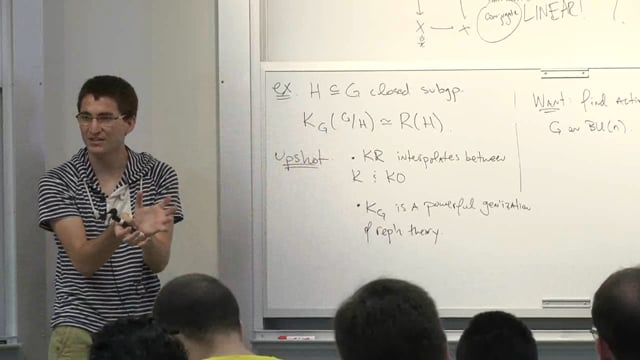 X → X
conjugate LINEAR!
ex. H ⊆ G closed subgp.
K_G(G/H) ≃ R(H).
upshot • KR interpolates between
K & KO
• K_G is a powerful genlization
of repn theory.
Want: find acti
G on BU(n)